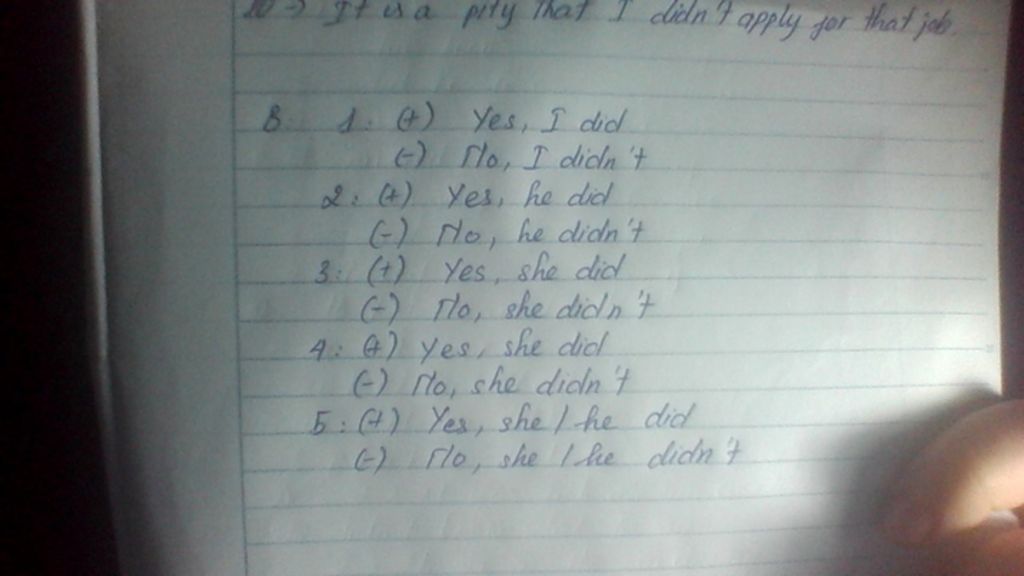 10 → It is a pity that I didn't apply for that job.
B: 1: (+) Yes, I did
(-) No, I didn't
2: (+) Yes, he did
(-) No, he didn't
3: (+) Yes, she did
(-) No, she didn't
4: (+) Yes, she did
(-) No, she didn't
5: (+) Yes, she / he did
(-) No, she / he didn't